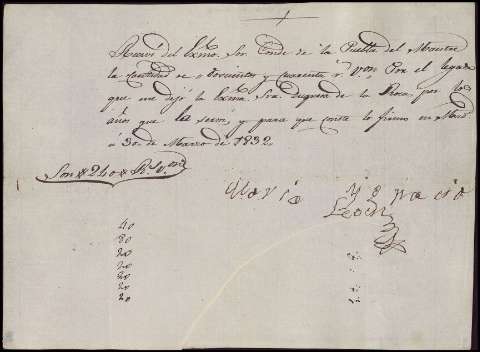 Recivi del Exmo. Sor. Conde de la Puebla del Maestre
la cantidad de doscientos y cuarenta rs. von. Por el legado
que me dejó la Exma. Sra. Duquesa de la Roca por los
años que la serví, y para que conste lo firmo en Madd.
á 30 de Marzo de 1832.
Son # 240 # Rs. von.
Maria Ygnacia
Leon
40
80
20
20
20
20
20